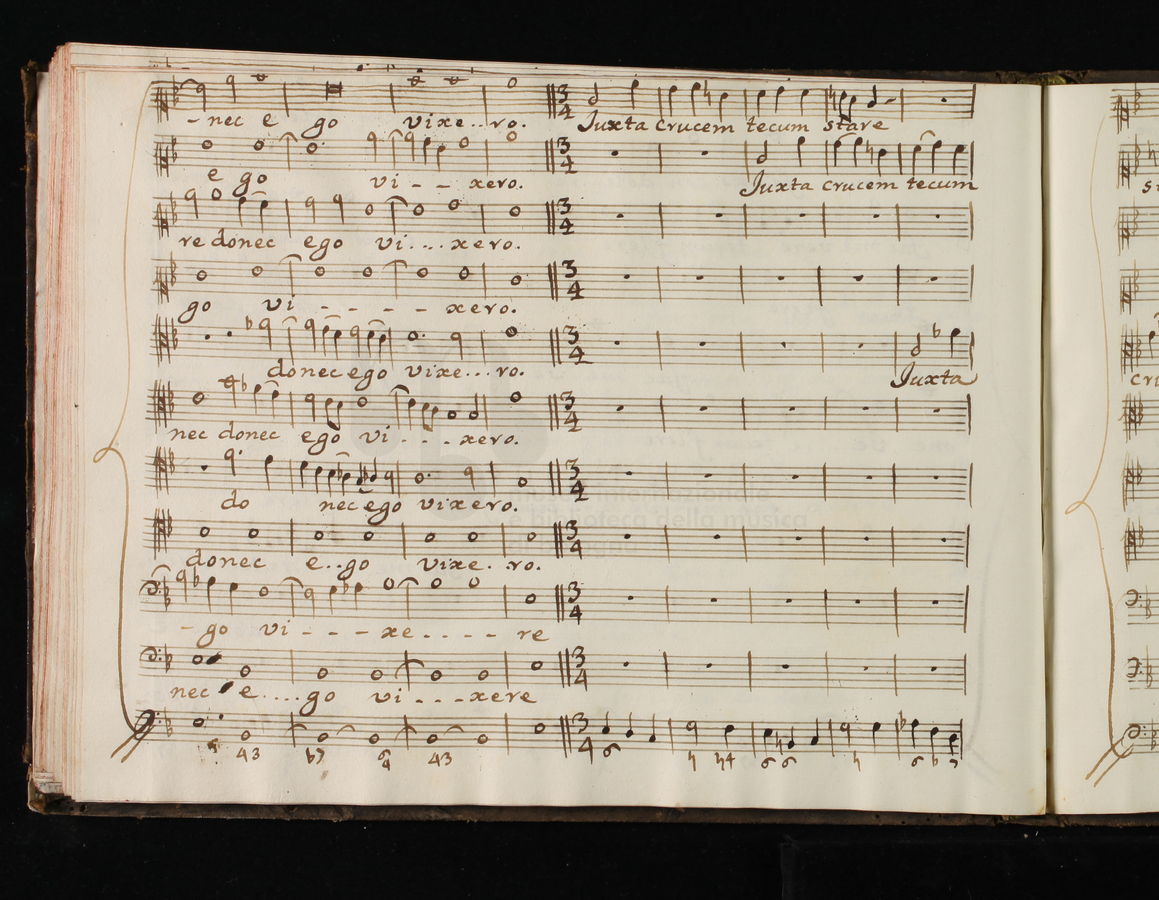 - nec e go vixe.. ro. Juxta crucem tecum stare
e go vi - - xero. Juxta crucem tecum
re donec ego vi.... xero.
go vi - - - - xero.
donec ego vixe... ro. Juxta
nec donec ego vi - - - xero.
do nec ego vixero.
donec e..go vixe. ro.
- go vi - - - xe - - - - re
nec e....go vi - - - xere